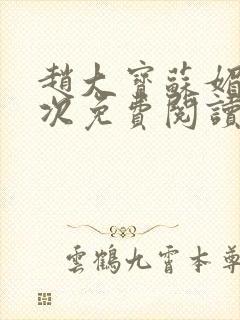 趙大寶蘇媚
次免費閱讀
雲鶴九霄本尊